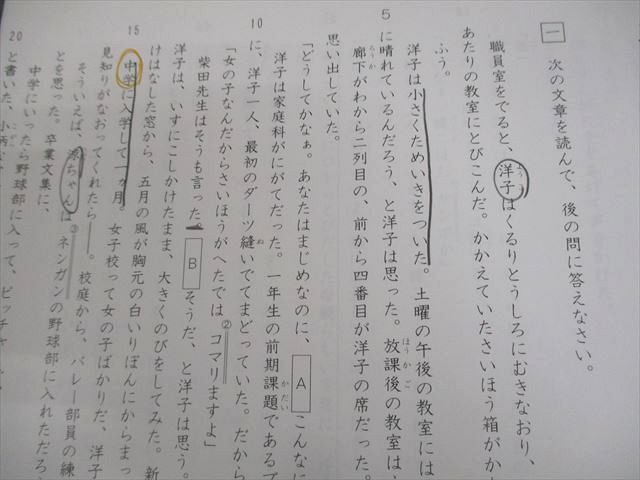 一 次の文章を読んで、後の問に答えなさい。
職員室をでると、洋子はくるりとうしろにむきなおり、
あたりの教室にとびこんだ。かかえていたさいほう箱がか
ふう。
洋子は小さくためいきをついた。土曜の午後の教室には
5
に晴れているんだろう、と洋子は思った。放課後の教室は、
廊下がわから二列目の、前から四番目が洋子の席だった。
思い出していた。
「どうしてかなぁ。あなたはじめなのに、Aこんなに
洋子は家庭科がにがてだった。一年生の前期課題であるブ
10
に、洋子一人、最初のダーツ縫いでてまどっていた。だから
「女の子なんだからさいほうがへたでは②コマリますよ」
柴田先生はそうも言った。Bそうだ、と洋子は思う。
洋子は、いすにこしかけたまま、大きくのびをしてみた。新
けはなした窓から、五月の風が胸元の白いりぼんにからまっ
15
中学に入学して一カ月。女子校って女の子ばかりだ、洋子
見知りがなおってくれたら――。校庭から、バレー部員の練
そういえば、源ちゃんは③ネンガンの野球部に入れただろ
とを思った。卒業文集に、
中学にいったら野球部に入って、ピッチャー
20
と書いた、小柄な